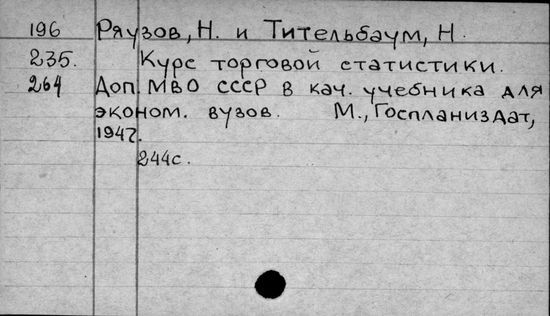 196 Ряузов, Н. и Тительбаум, Н.
235. Курс торговой статистики.
264 Доп. МВО СССР в кач. учебника для
эконом. вузов. М., Госпланиздат,
1947.
244с.